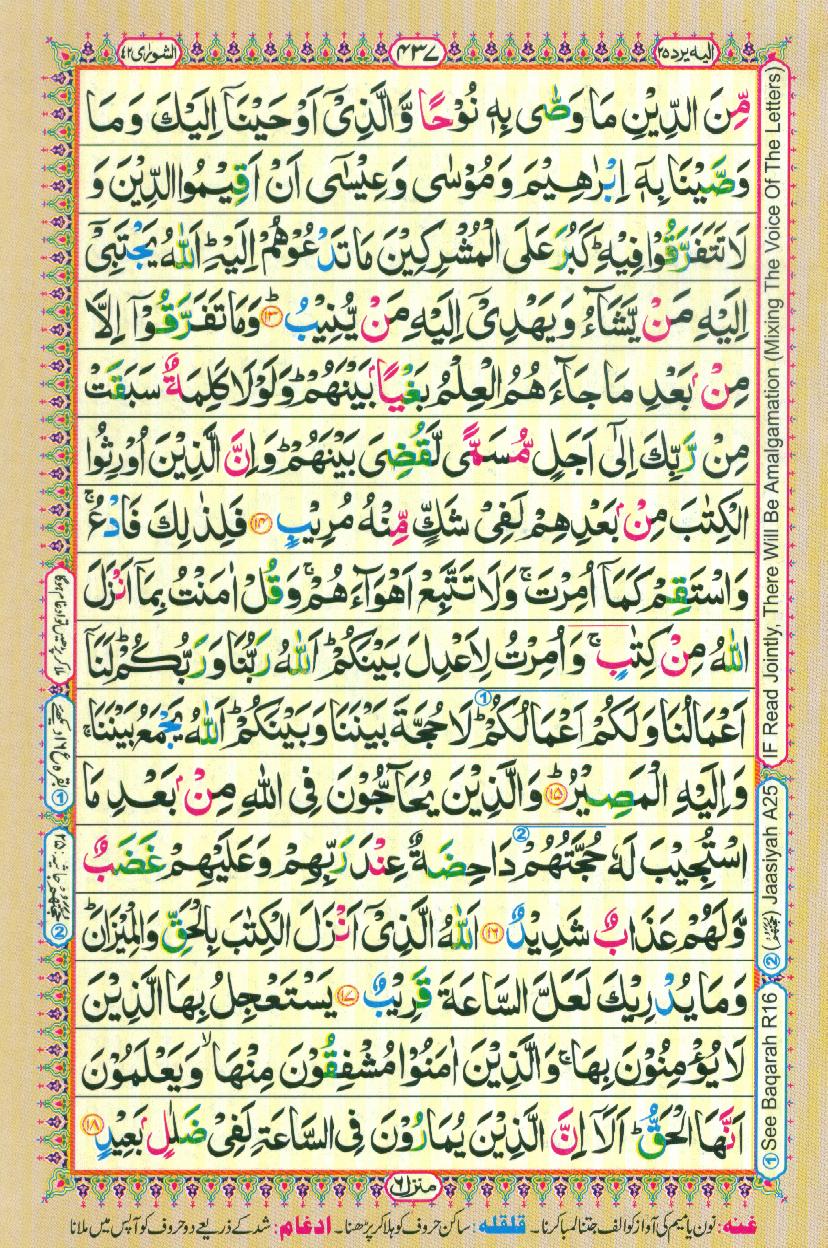 الیه یرد ۲۵
۴۳۷
الشورٰی ۴۲
مِّنَ الدِّیۡنِ مَا وَصّٰی بِہٖ نُوۡحًا وَّالَّذِیۡۤ اَوۡحَیۡنَاۤ اِلَیۡکَ وَمَا
وَصَّیۡنَا بِہٖۤ اِبۡرٰہِیۡمَ وَمُوۡسٰی وَعِیۡسٰۤی اَنۡ اَقِیۡمُوا الدِّیۡنَ وَ
لَا تَتَفَرَّقُوۡا فِیۡہِ ؕ کَبُرَ عَلَی الۡمُشۡرِکِیۡنَ مَا تَدۡعُوۡہُمۡ اِلَیۡہِ ؕ اَللّٰہُ یَجۡتَبِیۡۤ
اِلَیۡہِ مَنۡ یَّشَآءُ وَیَہۡدِیۡۤ اِلَیۡہِ مَنۡ یُّنِیۡبُ ؕ﴿۱۳﴾ وَمَا تَفَرَّقُوۡۤا اِلَّا
مِنۡۢ بَعۡدِ مَا جَآءَ ہُمُ الۡعِلۡمُ بَغۡیًۢا بَیۡنَہُمۡ ؕ وَلَوۡلَا کَلِمَۃٌ سَبَقَتۡ
مِنۡ رَّبِّکَ اِلٰۤی اَجَلٍ مُّسَمًّی لَّقُضِیَ بَیۡنَہُمۡ ؕ وَاِنَّ الَّذِیۡنَ اُوۡرِثُوا
الۡکِتٰبَ مِنۡۢ بَعۡدِہِمۡ لَفِیۡ شَکٍّ مِّنۡہُ مُرِیۡبٍ ﴿۱۴﴾ فَلِذٰلِکَ فَادۡعُ ۚ
وَاسۡتَقِمۡ کَمَاۤ اُمِرۡتَ ۚ وَلَا تَتَّبِعۡ اَہۡوَآءَہُمۡ ۚ وَقُلۡ اٰمَنۡتُ بِمَاۤ اَنۡزَلَ
اللّٰہُ مِنۡ کِتٰبٍ ۚ وَاُمِرۡتُ لِاَعۡدِلَ بَیۡنَکُمۡ ؕ اَللّٰہُ رَبُّنَا وَرَبُّکُمۡ ؕ لَنَاۤ
اَعۡمَالُنَا وَلَکُمۡ اَعۡمَالُکُمۡ ؕ ① لَا حُجَّۃَ بَیۡنَنَا وَبَیۡنَکُمۡ ؕ اَللّٰہُ یَجۡمَعُ بَیۡنَنَا ۚ
وَاِلَیۡہِ الۡمَصِیۡرُ ﴿ؕ۱۵﴾ وَالَّذِیۡنَ یُحَآجُّوۡنَ فِی اللّٰہِ مِنۡۢ بَعۡدِ مَا
اسۡتُجِیۡبَ لَہٗ حُجَّتُہُمۡ ② دَاحِضَۃٌ عِنۡدَ رَبِّہِمۡ وَعَلَیۡہِمۡ غَضَبٌ
وَّلَہُمۡ عَذَابٌ شَدِیۡدٌ ﴿۱۶﴾ اَللّٰہُ الَّذِیۡۤ اَنۡزَلَ الۡکِتٰبَ بِالۡحَقِّ وَالۡمِیۡزَانَ ؕ
وَمَا یُدۡرِیۡکَ لَعَلَّ السَّاعَۃَ قَرِیۡبٌ ﴿۱۷﴾ یَسۡتَعۡجِلُ بِہَا الَّذِیۡنَ
لَا یُؤۡمِنُوۡنَ بِہَا ۚ وَالَّذِیۡنَ اٰمَنُوۡا مُشۡفِقُوۡنَ مِنۡہَا ۙ وَیَعۡلَمُوۡنَ
اَنَّہَا الۡحَقُّ ؕ اَلَاۤ اِنَّ الَّذِیۡنَ یُمَارُوۡنَ فِی السَّاعَۃِ لَفِیۡ ضَلٰلٍۭ بَعِیۡدٍ ﴿۱۸﴾
منزل ۶
غنه: نون یا میم کی آواز کو الف جتنا لمبا کرنا۔ قلقله: ساکن حروف کو ہلا کر پڑھنا۔ ادغام: شد کے ذریعے دو حروف کو آپس میں ملانا
IF Read Jointly, There Will Be Amalgamation (Mixing The Voice Of The Letters)
② Jaasiyah A25
① See Baqarah R16